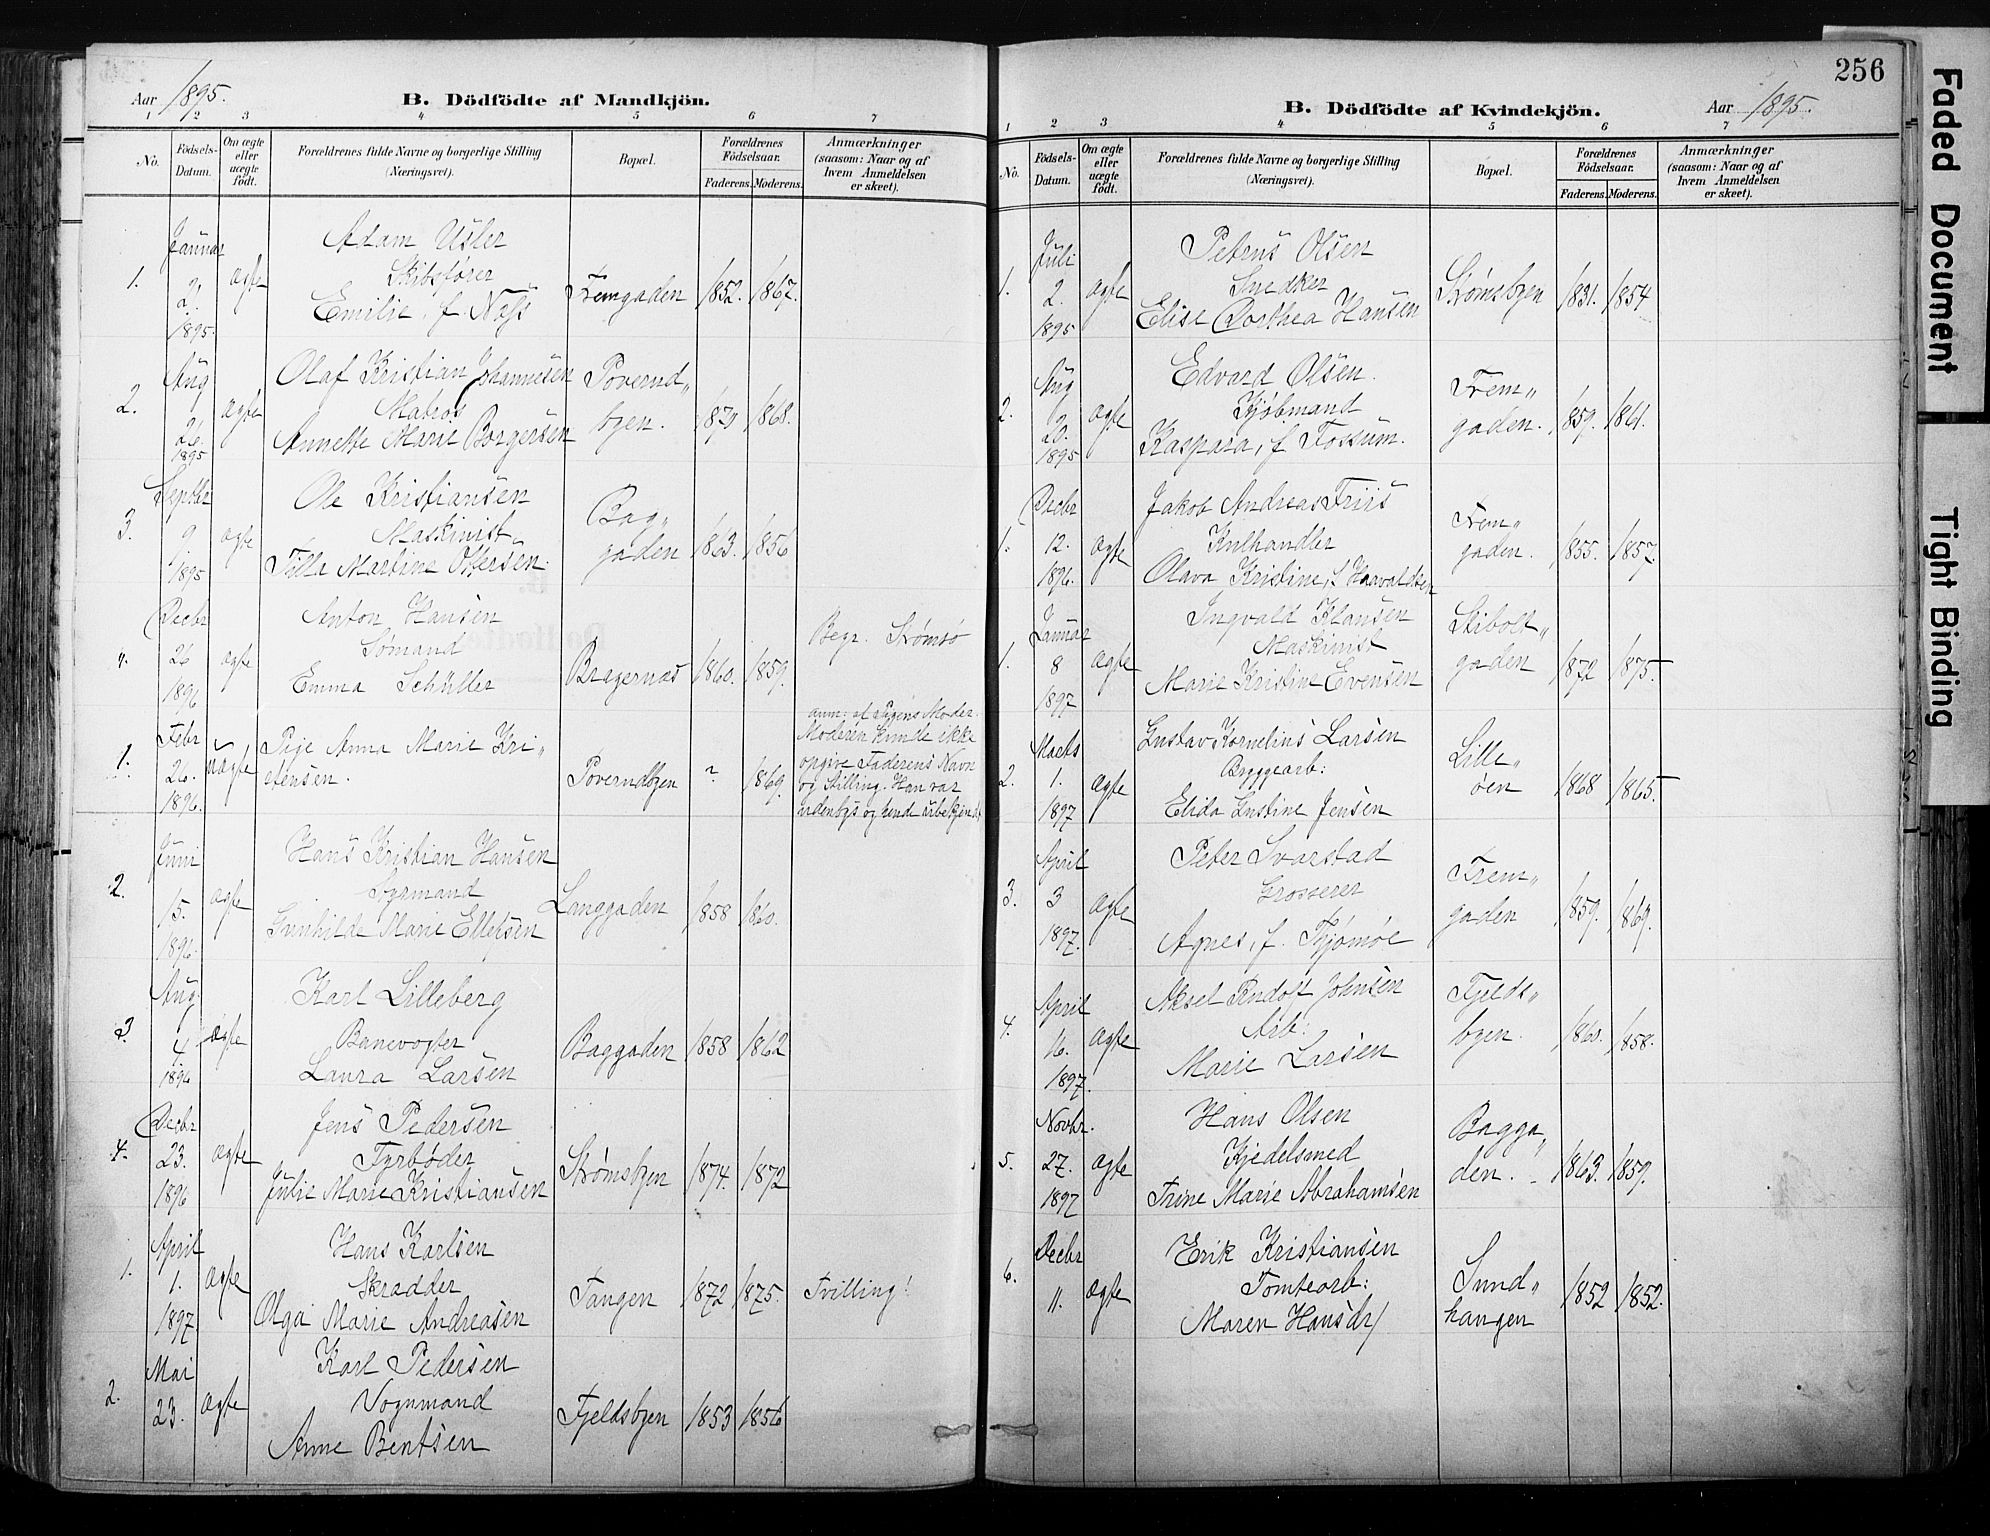 Aar 1895.
B. Dödfödte af Mandkjön.
1 2 3 4 5 6 7
No.
Födsels-Datum.
Om ægte eller uægte födt.
Forældrenes fulde Navne og borgerlige Stilling (Næringsvei).
Bopæl.
Forældrenes Födselsaar.
Faderens. Moderens.
Anmærkninger (saasom: Naar og af hvem Anmeldelsen er skeet).
Januar
Adam Usler
1. 2. ægte Skibsfører Fremgaden 1852. 1867.
1895. Emilie, f. Næss
Aug Olaf Kristian Johannesen Poverud„
2. 26. ægte Matros byen. 1870 1868.
1895 Annette Marie Borgersen
Septbr Ole Kristiansen Bag„
3. 9 ægte Maskinist gaden 1863. 1856
1895 Tilla Martine Ottersen.
Decbr Anton Hansen
Begr. Strømsø
„. 26 ægte Sømand Bragernæs 1860. 1859.
1896 Emma Schüller
anm: af Pigens Moder.
Febr Pige Anna Marie Kri„ Moderen kunde ikke
1. 26. uægte stensen. Poverudbyen ? 1869. opgive Faderens Navn
1896. og Stilling. Han var
udenbys og hende ubekjendt
Juni Hans Kristian Hansen
2. 15. ægte Syrmand Langgaden 1858 1860.
1896. Gunhilde Marie Ellefsen
Aug. Karl Lilleberg
3. 4. ægte Banevogter Baggaden 1858 1862
1896 Laura Larsen
Decbr Jens Pedersen
4. 23. ægte Fyrbøder Strømsbyen 1874. 1872
1896 Julie Marie Kristiansen
April Hans Karlsen
1. 1. ægte Skrædder Tangen 1872 1875. Tvilling!
1897. Olga Marie Andreasen
Mai Karl Pedersen
2. 23. ægte Vognmand Fjeldsbyen 1853 1856
Anne Bentsen
256
B. Dödfödte af Kvindekjön.
Aar 1895.
1 2 3 4 5 6 7
No.
Födsels-Datum.
Om ægte eller uægte födt.
Forældrenes fulde Navne og borgerlige Stilling (Næringsvei).
Bopæl.
Forældrenes Födselsaar.
Faderens. Moderens.
Anmærkninger (saasom: Naar og af hvem Anmeldelsen er skeet).
Juli Petrus Olsen
1. 2. ægte Snedker Strømsbyen 1831. 1854
1895 Elise Dorthea Hansen
Aug Edvard Olsen. Frem„
2. 20. ægte Kjøbmand gaden. 1859. 1861.
1895 Kaspara, f. Fossum.
Decbr Jakob Andreas Friis Frem„
1. 12. ægte Kulhandler gaden. 1855. 1857.
1896. Olava Kristine, f. Haavaldsen
Januar Ingvald Klausen Stibolt„
1. 8 ægte Maskinist gaden 1872 1875.
1897 Marie Kristine Evensen
Marts Gustav Kornelius Larsen Lille„
2. 1. ægte Byggearb: øen 1868 1865.
1897 Elida Gustine Jensen
April Peter Svarstad Frem„
3. 3 ægte Grosserer gaden 1859. 1869.
1897. Agnes, f. Tjømøe
April Aksel Rudolf Johnsen Fjelds„
4. 16. ægte Arb: byen. 1860. 1858.
1897. Marie Larsen
Novbr. Hans Olsen Bagga„
5. 27. ægte Kjedelsmed den. 1863. 1859.
1897 Trine Marie Abrahamsen
Decbr Erik Kristiansen Sund„
6. 11. ægte Tomtearb: haugen 1852 1852.
Maren Hansdr/
Faded Document
Tight Binding